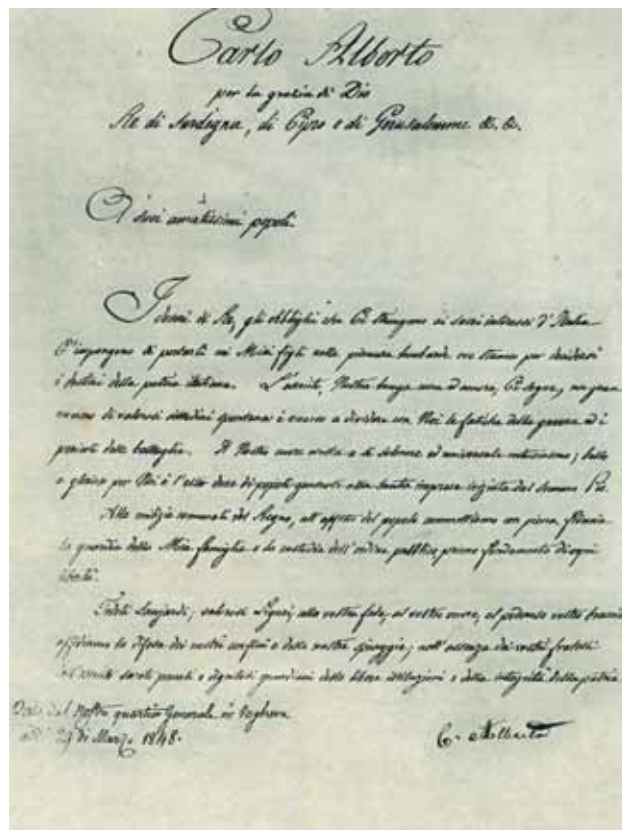 Carlo Alberto
per la grazia di Dio
Re di Sardegna, di Cipro e di Gerusalemme &. &.
A' suoi amatissimi popoli.
I doveri di Re, gli obblighi che Ci stringono ai sacri interessi d'Italia
C'impongono di portarci coi Miei figli nella pianura lombarda ove stanno per decidersi
i destini della patria italiana. L'esercito, Nostra lunga cura d'amore, Ci segue, un gran
numero di valorosi cittadini spontaneo è accorso a dividere con Noi le fatiche della guerra ed i
pericoli delle battaglie. Il Nostro cuore esulta a sì solenne ed universale entusiasmo; bello
e glorioso per Noi è l'esser duce di popoli generosi alla santa impresa iniziata dal sommo Pio.
Alle milizie comunali del Regno, all'affetto del popolo commettiamo con piena fiducia
la guardia della Mia famiglia e la custodia dell'ordine pubblico, primo fondamento di ogni
libertà.
Savoiardi, valorosi Liguri, alla vostra fede, al vostro cuore, al vostro braccio
affidiamo la difesa dei nostri confini e delle nostre spiaggie; nell'assenza dei vostri fratelli
guardiani delle libere istituzioni e della integrità della patria
Dato dal Nostro quartier Generale in Voghera
addì 29 di Marzo 1848.
C. Alberto